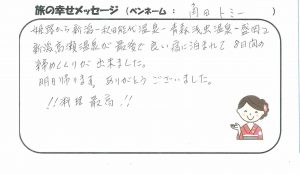 旅の幸せメッセージ（ペンネーム： 高田トミー ）
姫路から新潟－秋田能代温泉－青森浅虫温泉－盛岡と
新潟高瀬温泉が最後で良い宿に泊まれて8日間の
締めくくりが出来ました。
明日帰ります。ありがとうございました。
!!料理最高!!